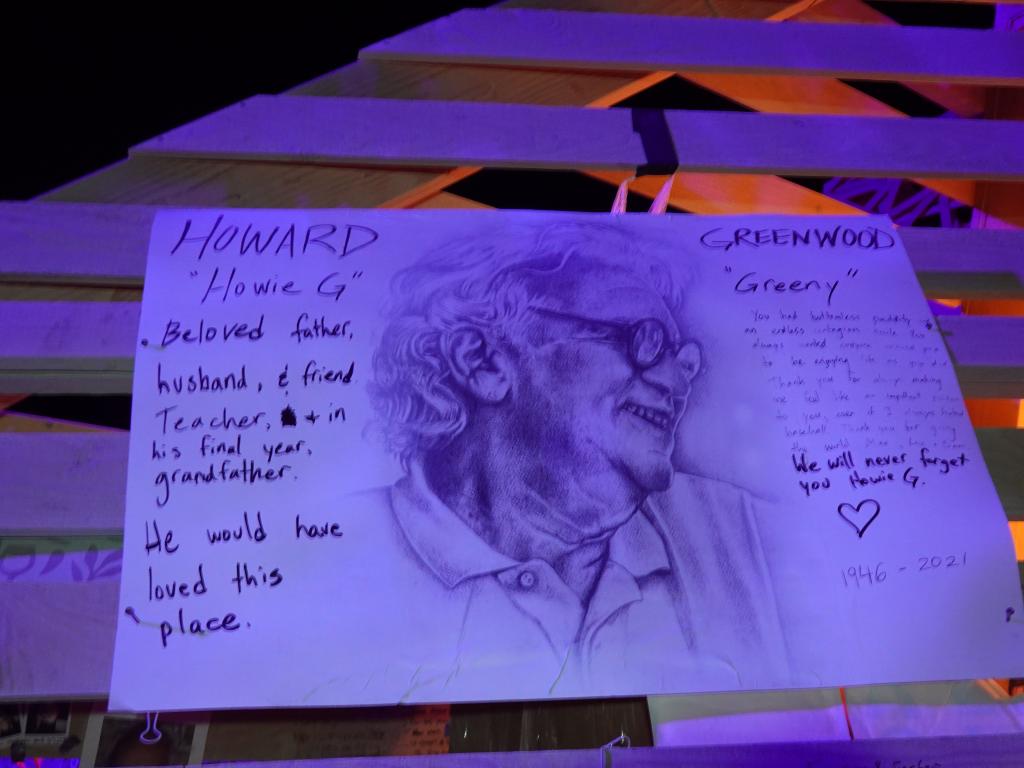 HOWARD
"Howie G"
Beloved father,
husband, & friend
Teacher, + in
his final year,
grandfather.
He would have
loved this
place.
GREENWOOD
"Greeny"
You had bottomless
an endless
always wanted
to be enjoying life as
Thank you for always making
me feel like an important
to you, even if I always hated
baseball. Thank you for giving
the world
We will never forget
you Howie G.
1946 - 2021